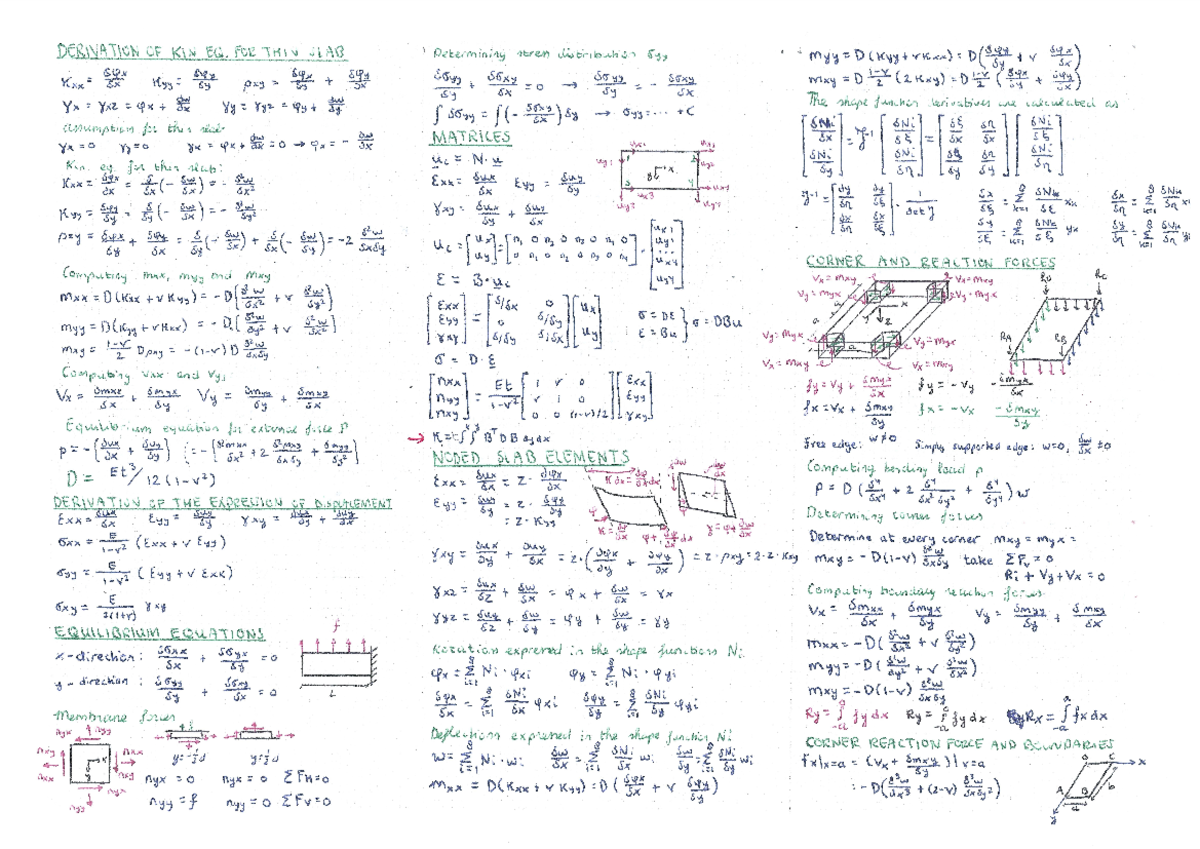 DERIVATION OF KIN EQ. FOR THIN SLAB
Kxx = δφx/δx   Kyy = δφy/δy   ρxy = δφx/δy + δφy/δx
γx = γxz = φx + δw/δx   γy = γyz = φy + δw/δy
assumption for thin slab
γx = 0   γy = 0   γx = φx + δw/δx = 0 → φx = - δw/δx
Kin. eq. for thin slab:
Kxx = δφx/δx = δ/δx (- δw/δx) = - δ²w/δx²
Kyy = δφy/δy = δ/δy (- δw/δx) = - δ²w/δy²
ρxy = δφx/δy + δφy/δx = δ/δy (- δw/δx) + δ/δx (- δw/δy) = -2 δ²w/δxδy
Computing mxx, myy and mxy
mxx = D(Kxx + v Kyy) = -D[δ²w/δx² + v δ²w/δy²]
myy = D(Kyy + v Kxx) = -D[δ²w/δy² + v δ²w/δx²]
mxy = 1-v/2 D ρxy = -(1-v) D δ²w/δxδy
Computing Vxx and Vyy
Vx = δmxx/δx + δmyx/δy   Vy = δmyy/δy + δmxy/δx
Equilibrium equation for external force P
p = -[δvx/δx + δvy/δy] = -[δ²mxx/δx² + 2 δ²mxy/δxδy + δ²myy/δy²]
D = Et³/12(1-v²)
DERIVATION OF THE EXPRESSION OF DISPLACEMENT
Ɛxx = δux/δx   Ɛyy = δuy/δy   γxy = δux/δy + δuy/δx
σxx = E/1-v² (Ɛxx + v Ɛyy)
σyy = E/1-v² (Ɛyy + v Ɛxx)
σxy = E/2(1+v) γxy
EQUILIBRIUM EQUATIONS
f
x-direction: δσxx/δx + δσyx/δy = 0
y-direction: δσyy/δy + δσxy/δx = 0
L
Membrane forces
nyx nyy
nxy nxx
nxx nxy
nyx
nyy
nyx = 0   nyx = 0   ΣFH=0
nyy = f   nyy = 0   ΣFv=0
Determining stress distribution σyy
δσyy/δy + δσxy/δx = 0 → δσyy/δy = - δσxy/δx
∫ δσyy = ∫(- δσxy/δx) δy → σyy = ... + C
MATRICES
uc = N · u
Ɛxx = δux/δx   Ɛyy = δuy/δy
γxy = δux/δy + δuy/δx
uc = [ux uy] = [n1 0 n2 0 n3 0 n4 0 / 0 n1 0 n2 0 n3 0 n4] · [ux1 uy1 ⋮ ux4 uy4]
Ɛ = B · uc
[Ɛxx Ɛyy γxy] = [δ/δx 0 / 0 δ/δy / δ/δy δ/δx] [ux uy]   σ = DƐ   Ɛ = Bu } σ = DBu
σ = D · Ɛ
[nxx nyy nxy] = Et/1-v² [1 v 0 / v 1 0 / 0 0 (1-v)/2] [Ɛxx Ɛyy γxy]
→ K = t∫∫ Bᵀ D B dy dx
NODED SLAB ELEMENTS
Ɛxx = δux/δx = z · δφx/δx
Ɛyy = δuy/δy = z · δφy/δy
= z · Kyy
γxy = δux/δy + δuy/δx = z · (δφx/δy + δφy/δx) = z · ρxy = 2 · z · Kxy
γxz = δux/δz + δw/δx = φx + δw/δx = γx
γyz = δuy/δz + δw/δy = φy + δw/δy = γy
Rotation expressed in the shape functions Ni
φx = Σ Ni · φxi   φy = Σ Ni · φyi
δφx/δx = Σ δNi/δx φxi   δφy/δy = Σ δNi/δy φyi
Deflections expressed in the shape function Ni
w = Σ Ni · wi   δw/δx = Σ δNi/δx wi   δw/δy = Σ δNi/δy wi
mxx = D(Kxx + v Kyy) = D(δφx/δx + v δφy/δy)
myy = D(Kyy + v Kxx) = D(δφy/δy + v δφx/δx)
mxy = D 1-v/2 (2Kxy) = D 1-v/2 (δφx/δy + δφy/δx)
The shape function derivatives are calculated as
[δNi/δx δNi/δy] = J⁻¹ [δNi/δξ δNi/δη] = [δξ/δx δη/δx / δξ/δy δη/δy] [δNi/δξ δNi/δη]
δx/δξ = Σ δNk/δξ xk
δy/δξ = Σ δNk/δξ yk
CORNER AND REACTION FORCES
Vx=mxy   Vx=mxy
Vy=myx   Vy=myx
Vy=myx   Vy=myx
Vx=mxy   Vx=mxy
RO RC
RA RB
fy = Vy + δmyx/δx   fy = -Vy - δmyx/δx
fx = Vx + δmxy/δy   fx = -Vx - δmxy/δy
Free edge: w≠0   Simply supported edge: w=0, δw/δx ≠0
Computing bending load p
P = D (δ⁴/δx⁴ + 2 δ⁴/δx²δy² + δ⁴/δy⁴) w
Determining corner forces
Determine at every corner mxy = myx =
mxy = -D(1-v) δ²w/δxδy   take ΣFv = 0
Ri + Vy + Vx = 0
Computing boundary reaction forces
Vx = δmxx/δx + δmyx/δy   Vy = δmyy/δy + δmxy/δx
mxx = -D(δ²w/δx² + v δ²w/δy²)
myy = -D(δ²w/δy² + v δ²w/δx²)
mxy = -D(1-v) δ²w/δxδy
Ry = ∫ fy dx   Ry = ∫ fy dx   Rx = ∫ fx dx
CORNER REACTION FORCE AND BOUNDARIES
fx|x=a = (Vx + δmxy/δy)|x=a
= -D(δ³w/δx³ + (2-v) δ³w/δxδy²)
O C x
A B b
a
y